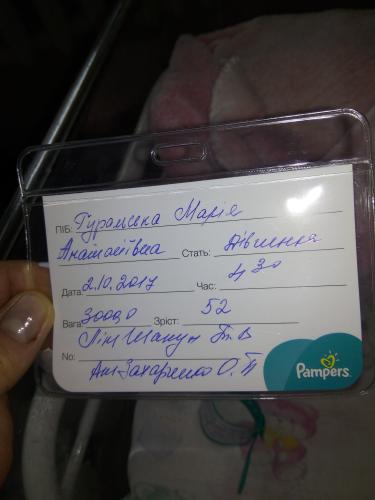 ПІБ: Гурамська Марія
Анатоліївна Стать: дівчинка
Дата 2.10.2017 Час: 4 30
Вага 3000,0 Зріст: 52
Лік Шапун Т.В
No:
Ак Захарченко О.П
Pampers